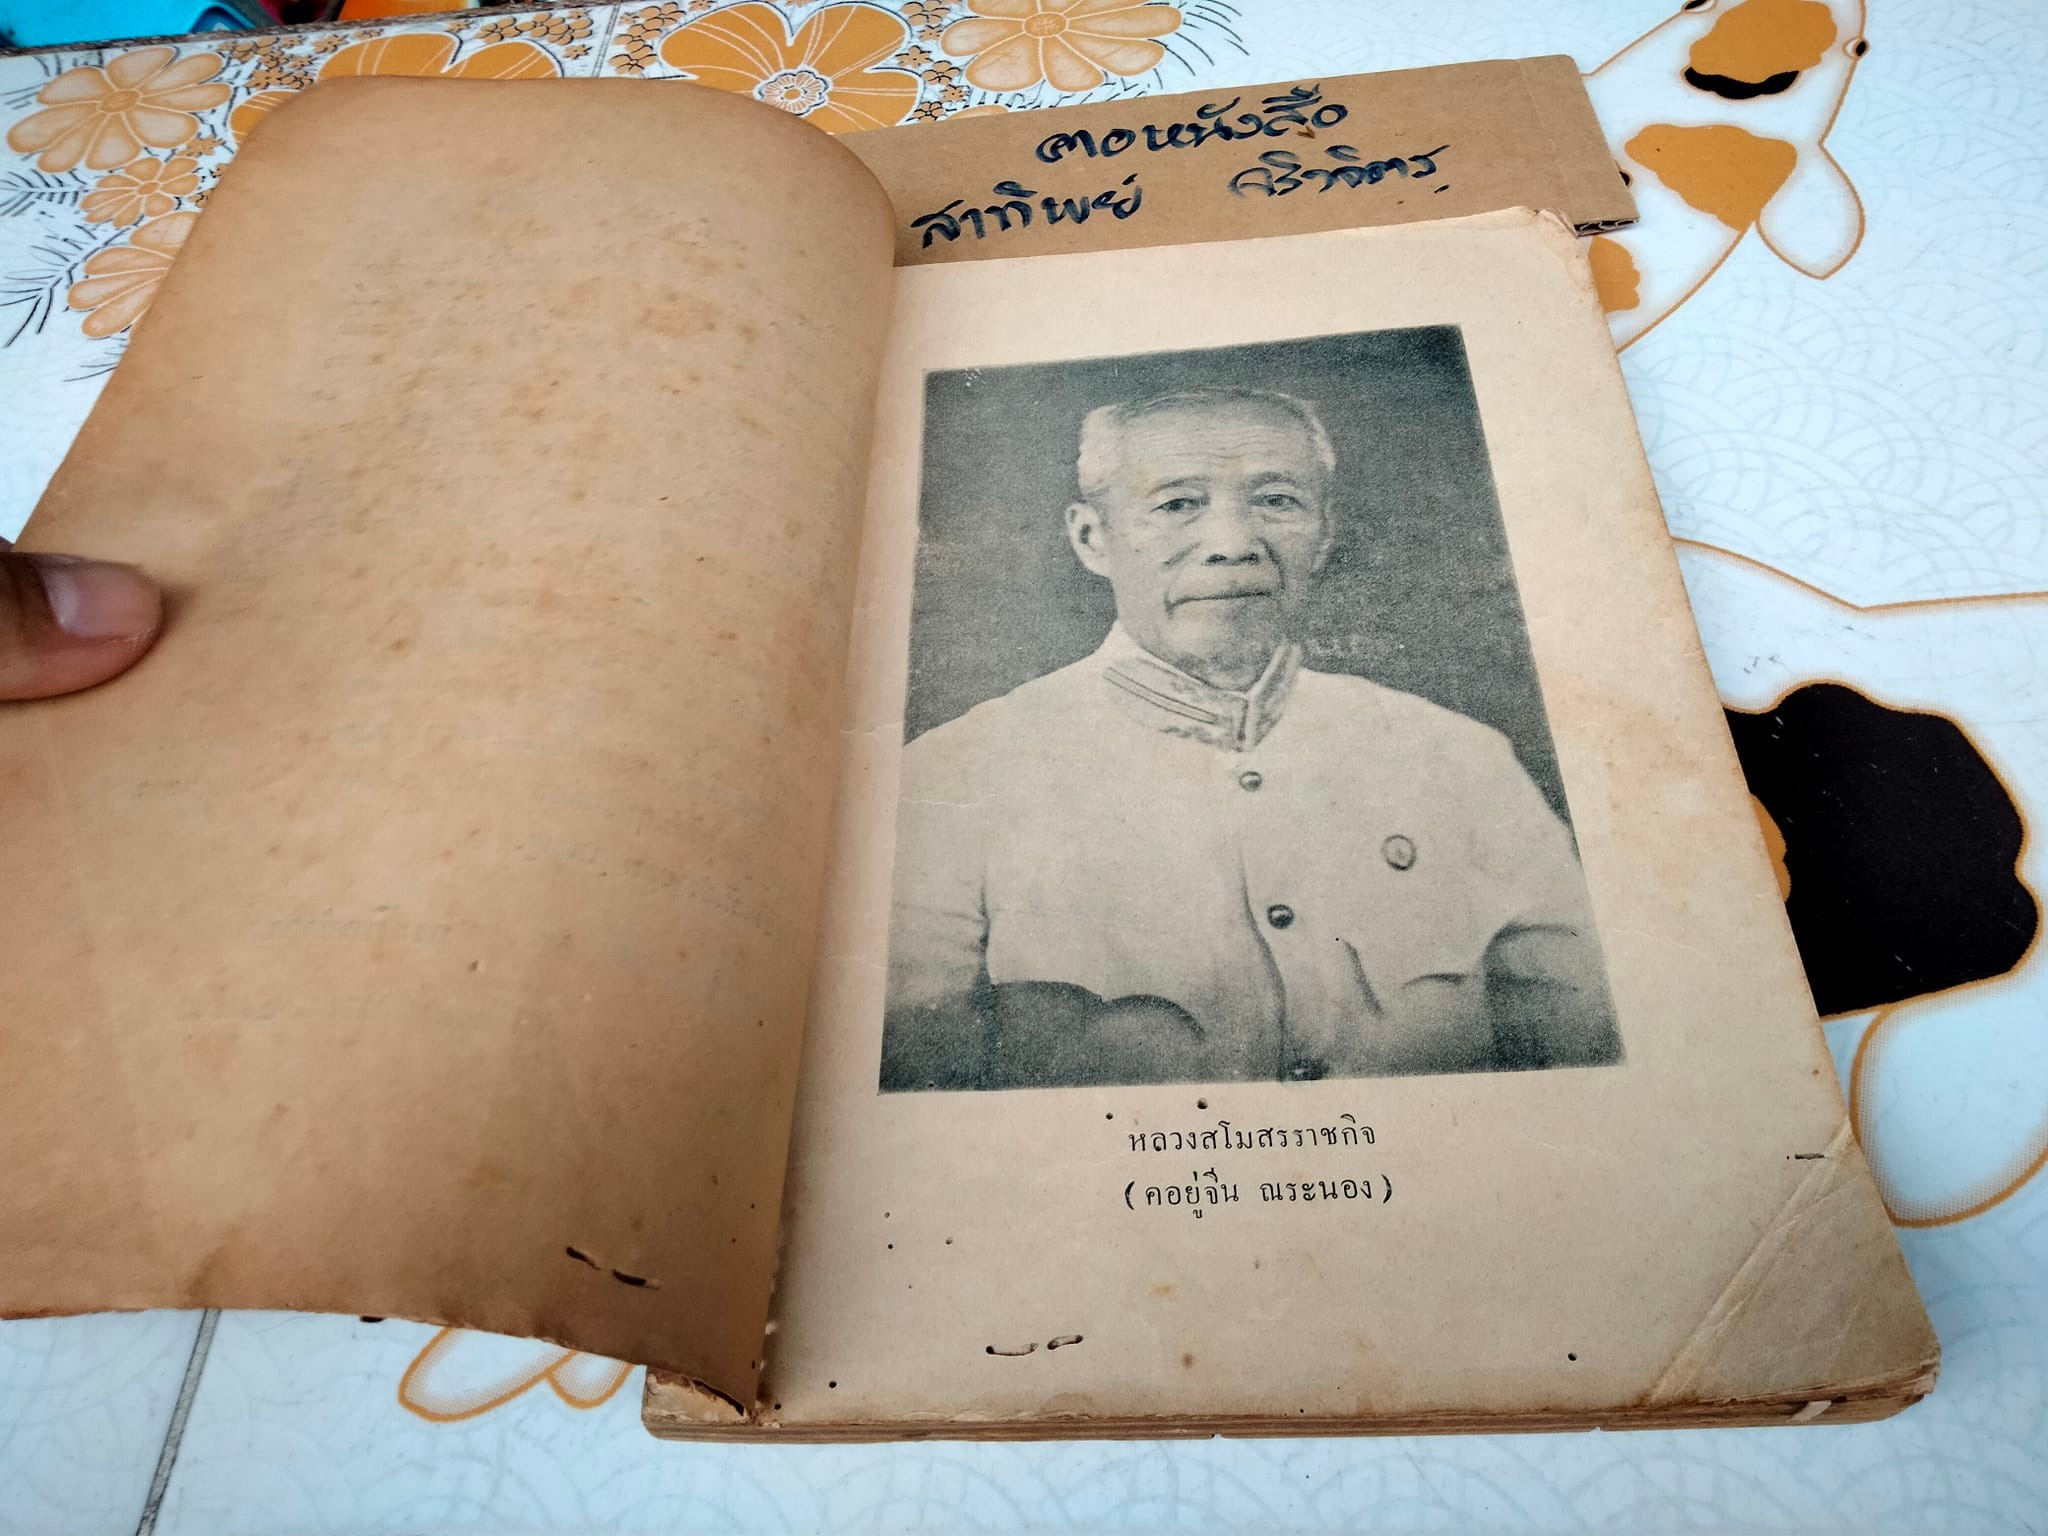 คอหนังสือ
สาทิพย์
หลวงสโมสรราชกิจ
(คอยู่จีน ณระนอง)